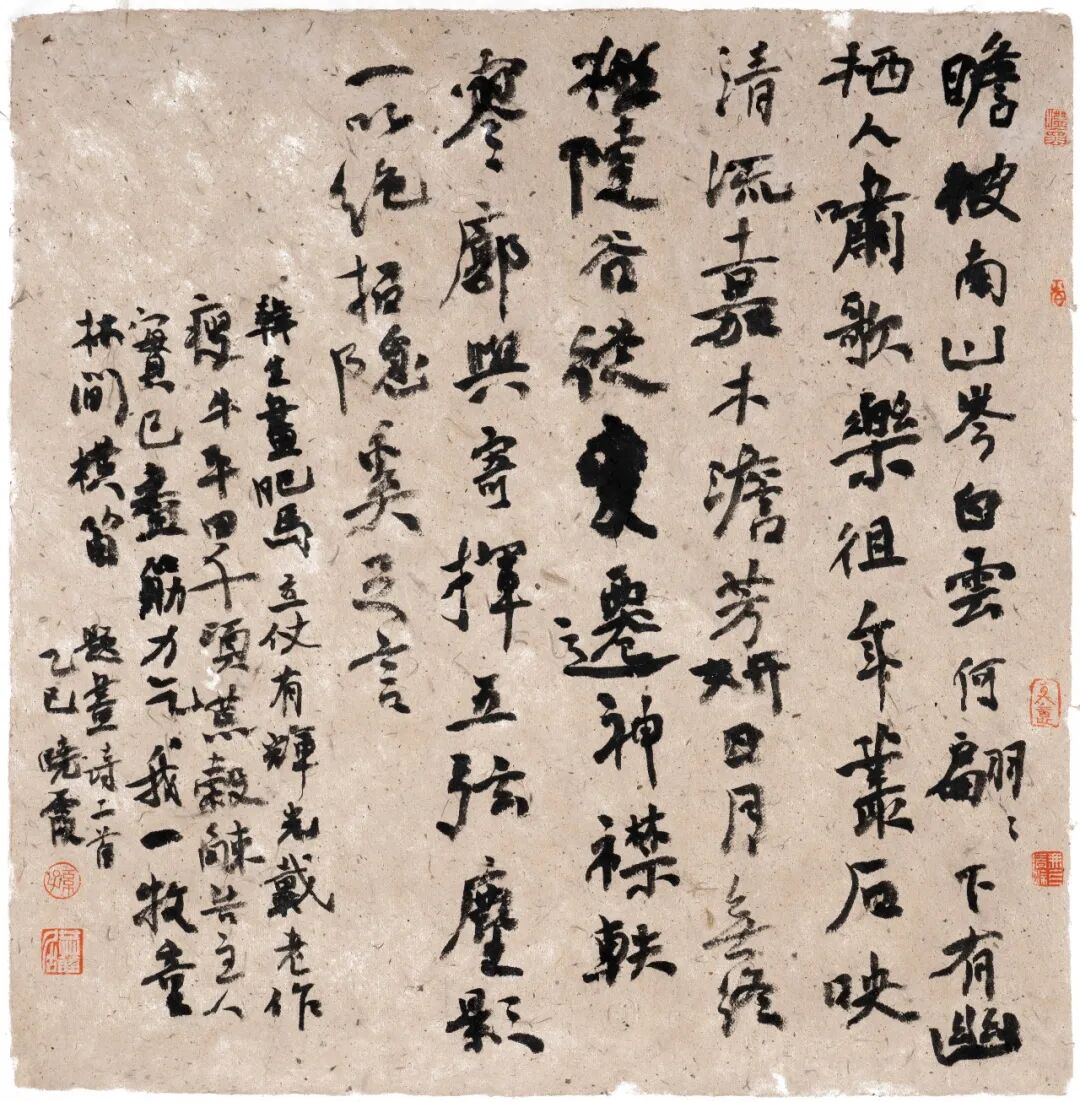 瞻彼南山岑白雲何翩〻下有幽
栖人嘯歌樂徂年叢石映
清流嘉木澹芳妍日月無終
極陵谷從變遷神襟軼
寥廓興寄揮五弦塵影
一以絶招隐奚足言
韓生畫肥馬立仗有輝光戴老作
瘦牛平田千頃荒觳觫告主人
實已盡筋力乞我一牧童
林間橫笛 題畫詩二首
乙巳曉霞